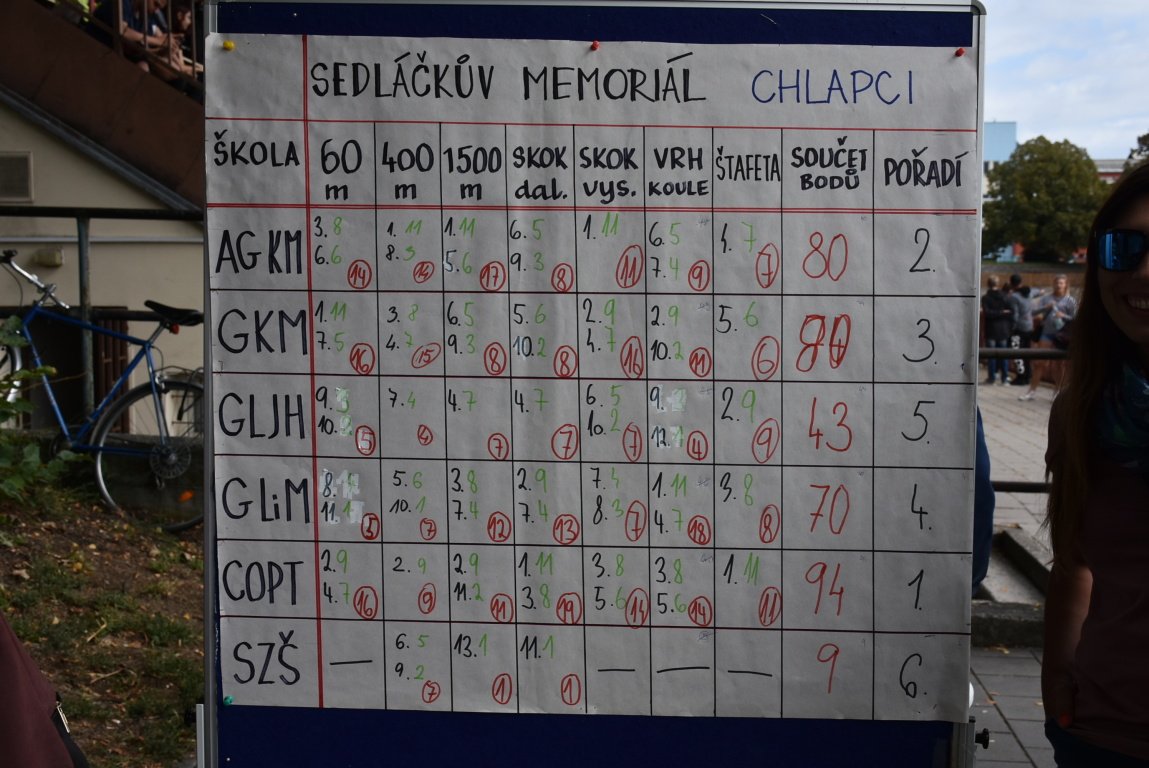 SEDLÁČKŮV MEMORIÁL CHLAPCI
ŠKOLA 60 m 400 m 1500 m SKOK dal. SKOK vys. VRH KOULE ŠTAFETA SOUČET BODŮ POŘADÍ
AGKM 3. 8 1. 11 1. 11 6. 5 1. 11 6. 5 4. 7 80 2.
6. 6 14 8. 3 14 5. 6 17 9. 3 8 11 7. 4 9 7
GKM 1. 11 3. 8 6. 5 5. 6 2. 9 2. 9 5. 6 80 3.
7. 5 16 4. 7 15 9. 3 8 10. 2 8 4. 7 16 10. 2 11 6
GLJH 9. 3 7. 4 4. 7 4. 7 6. 5 9. 3 2. 9 43 5.
10. 2 5 4 7 7 10. 2 7 12. 1 4 9
GLiM 8. 4 5. 6 3. 8 2. 9 7. 4 1. 11 3. 8 70 4.
11. 1 5 10. 1 7 7. 4 12 7. 4 13 8. 3 7 4. 7 18 8
COPT 2. 9 2. 9 2. 9 1. 11 3. 8 3. 8 1. 11 94 1.
4. 7 16 9 11. 2 11 3. 8 19 5. 6 14 5. 6 14 11
SZŠ — 6. 5 13. 1 11. 1 — — — 9 6.
9. 2 7 1 1